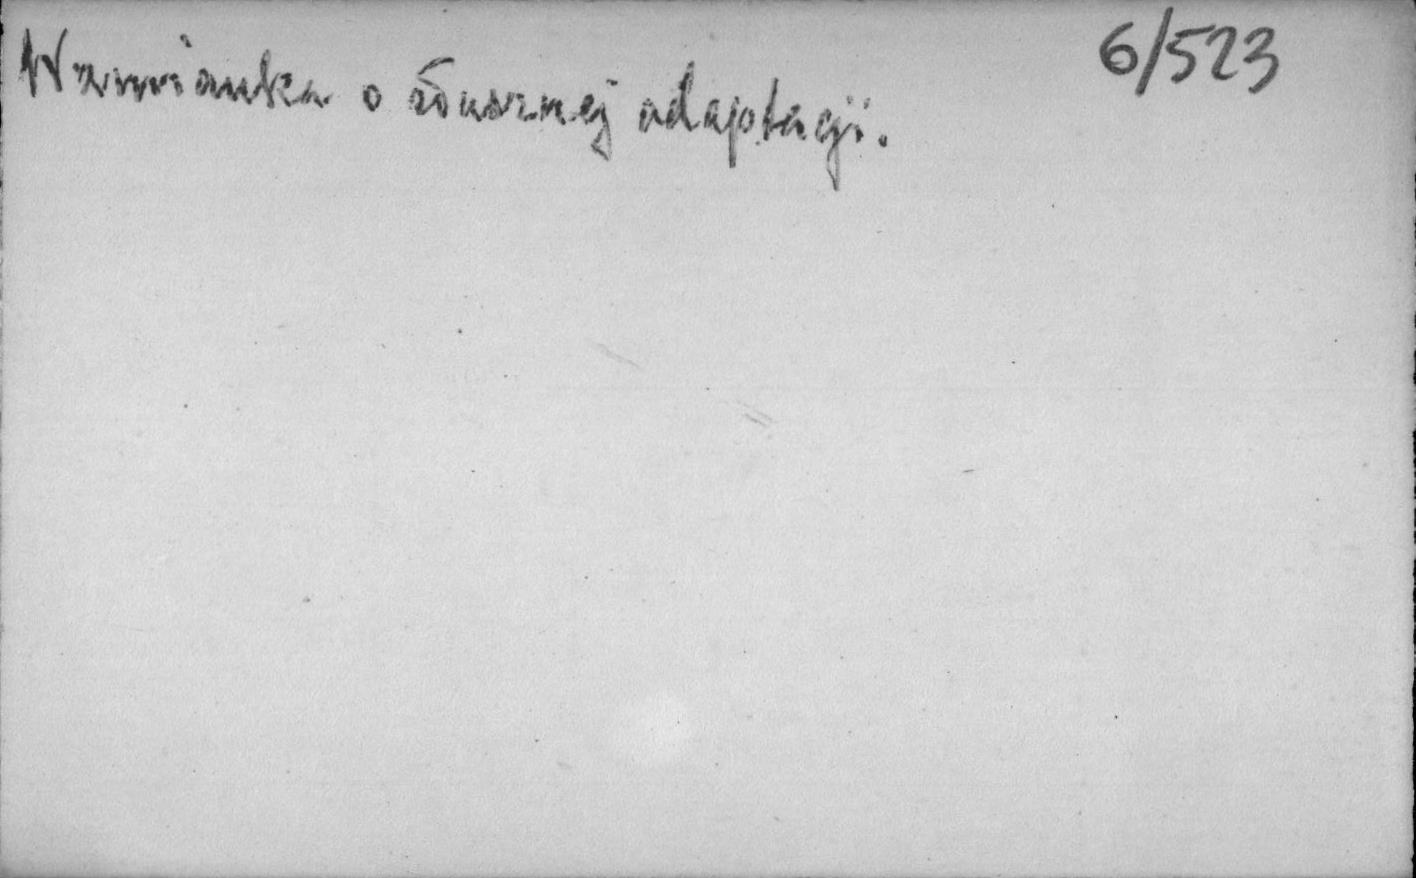 6/523
Wzmianka o słusznej adaptacji.